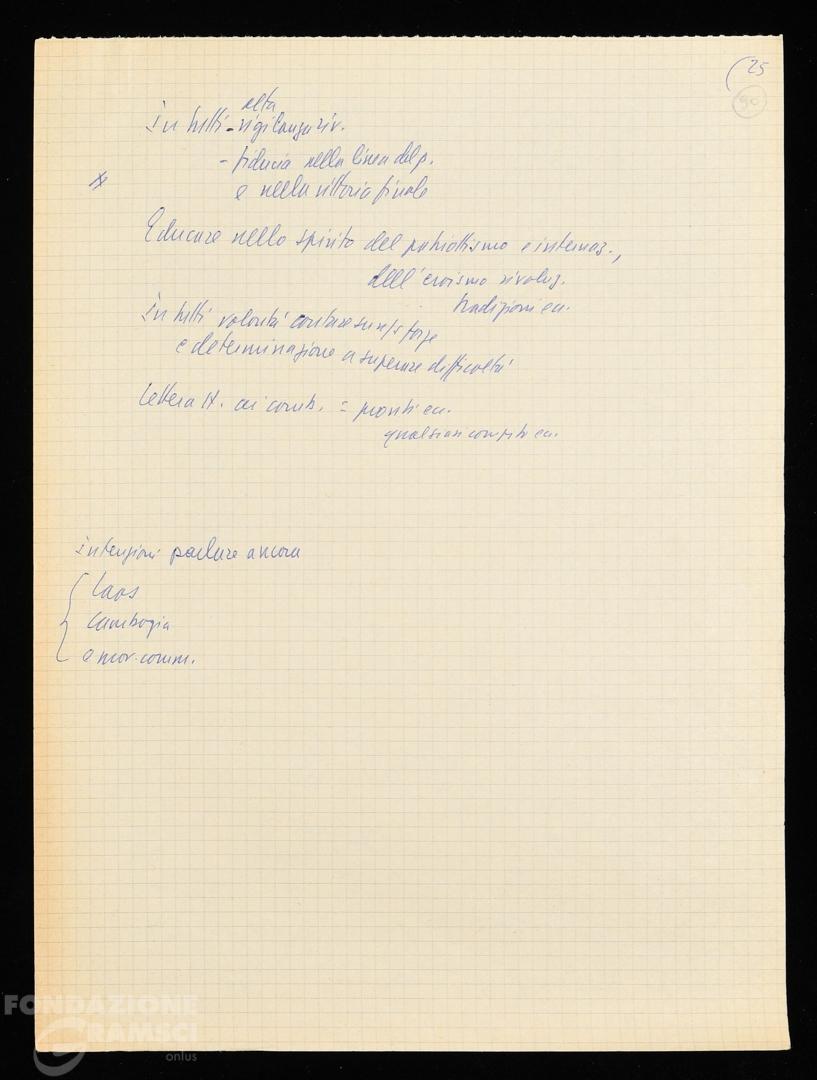 25
90
alta
In tutti - vigilanza riv.
- fiducia nella linea del p.
e nella vittoria finale
Educare nello spirito del patriottismo e internaz.,
dell'eroismo rivoluz.
tradizioni ecc.
In tutti volontà contare su forze
e determinazione a superare difficoltà
Lettera ai comb. = pronti ecc.
qualsiasi compito ecc.
intenzioni parlare ancora
Laos
Cambogia
e mov. comm.
FONDAZIONE
GRAMSCI
onlus